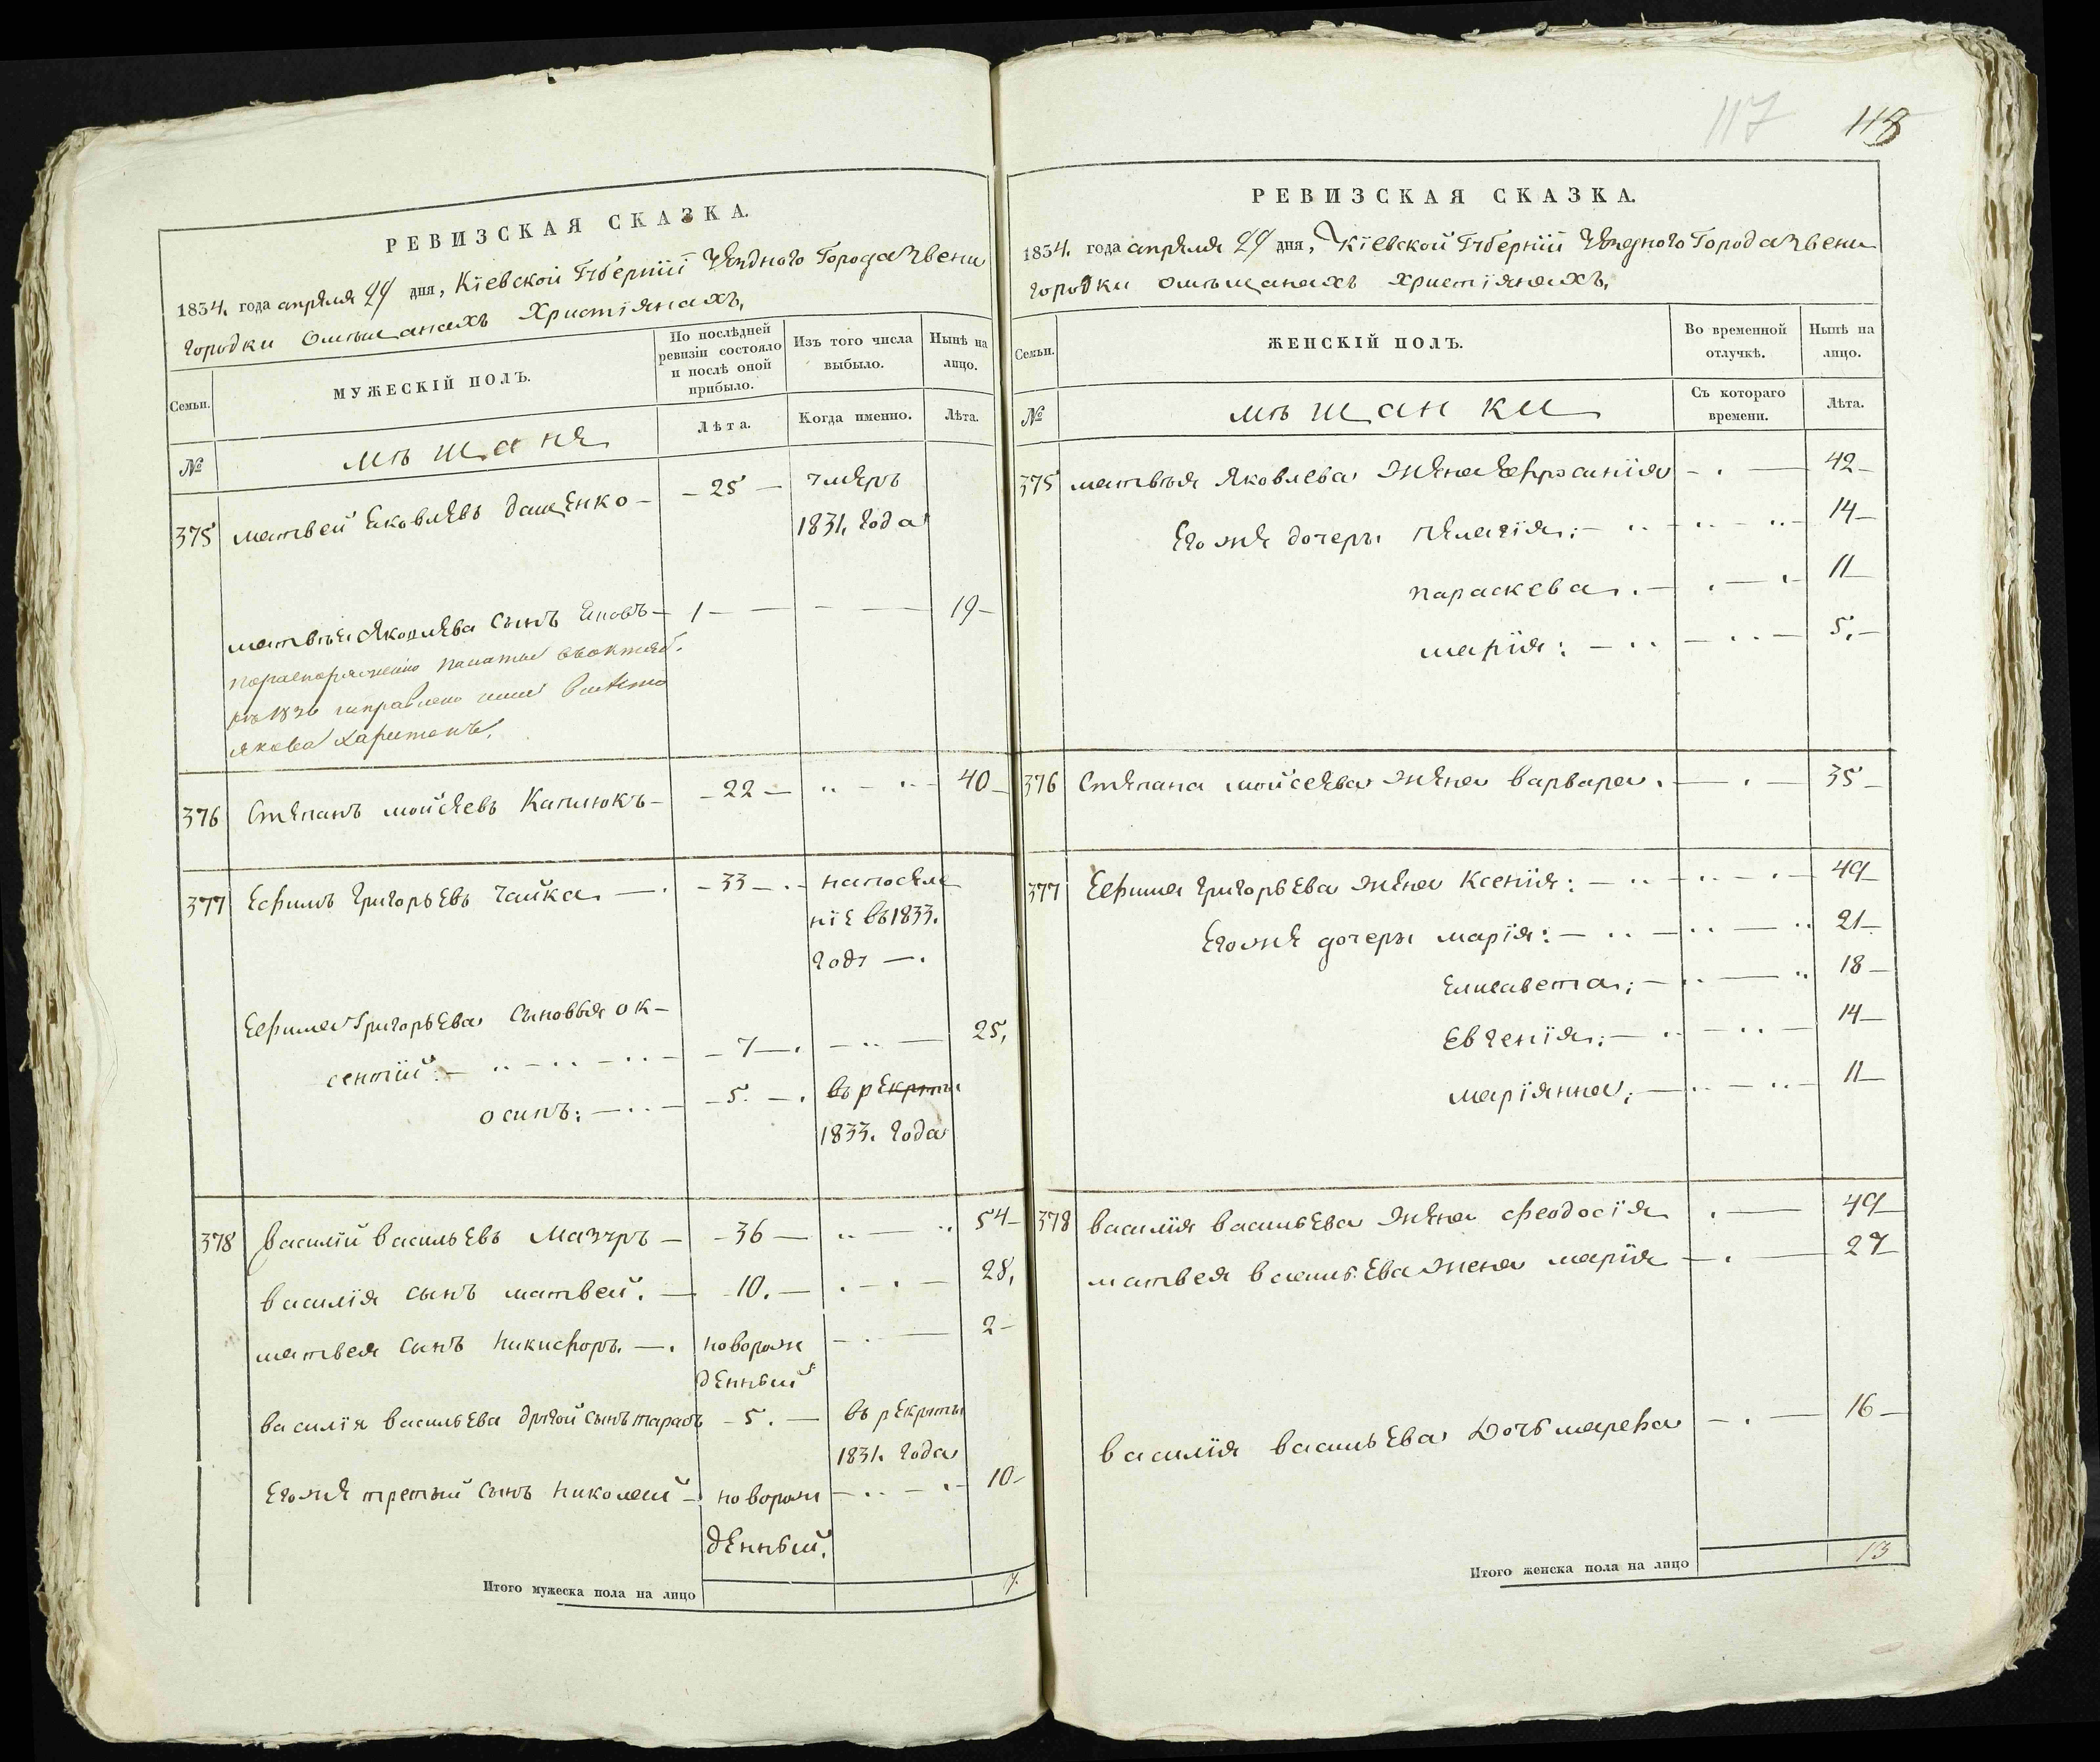 117 118
РЕВИЗСКАЯ СКАЗКА.
1834. года апреля 29 дня, Кіевской Губерніи Уѣзднаго Города Звени
городки омѣщанахъ Христіянахъ,
Семьи.
МУЖЕСКІЙ ПОЛЪ.
По послѣдней ревизіи состояло и послѣ оной прибыло.
Изъ того числа выбыло.
Нынѣ на лицо.
№
мѣщане
Лѣта.
Когда именно.
Лѣта.
375 матвей Яковлевъ дащенко — 25 — умеръ
1831. года
матвѣя Яковлева сынъ Яковъ — 1 — — 19 —
якова Харитонъ.
376 Степанъ мойсеевъ Каплюкъ — 22 — 40 —
377 Ефимъ Григорьевъ чайка — 33 — напоселе
ніе въ 1833.
году —.
Ефима Григорьева сыновья ок-
сентій: — 7 — 25,
осипъ: — 5. — въ рекруты
1833. года
378 василій васильевъ Мазуръ — 36 — 54 —
василія сынъ матвей. — 10. — 28,
матвея сынъ никифоръ. — новорож 2 —
денный
василія васильева другой сынъ тарасъ — 5. — въ рекруты
1831. года
Егоже третый сынъ николай — новорож 10 —
денный.
Итого мужеска пола на лицо 7.
РЕВИЗСКАЯ СКАЗКА.
1834. года апреля 29 дня, Кіевской Губерніи Уѣзднаго Города Звени
городки омѣщанахъ христіянахъ,
Семьи.
ЖЕНСКІЙ ПОЛЪ.
Во временной отлучкѣ.
Нынѣ на лицо.
№
мѣщанки
Съ котораго времени.
Лѣта.
375 матвѣя Яковлева жена Ефросинія — 42 —
Егоже дочеры пелагія: — 14 —
параскева. — 11 —
марія: — 5. —
376 Степана мойсеева жена варвара. — 35 —
377 Ефима григорьева жена Ксенія: — 49 —
Егоже дочеры марія: — 21 —
Елисавета: — 18 —
Евгенія: — 14 —
маріянна: — 11 —
378 василія васильева жена феодосія — 49 —
матвея васильева жена марія — 27 —
василія васильева Дочь марфа — 16 —
Итого женска пола на лицо 13